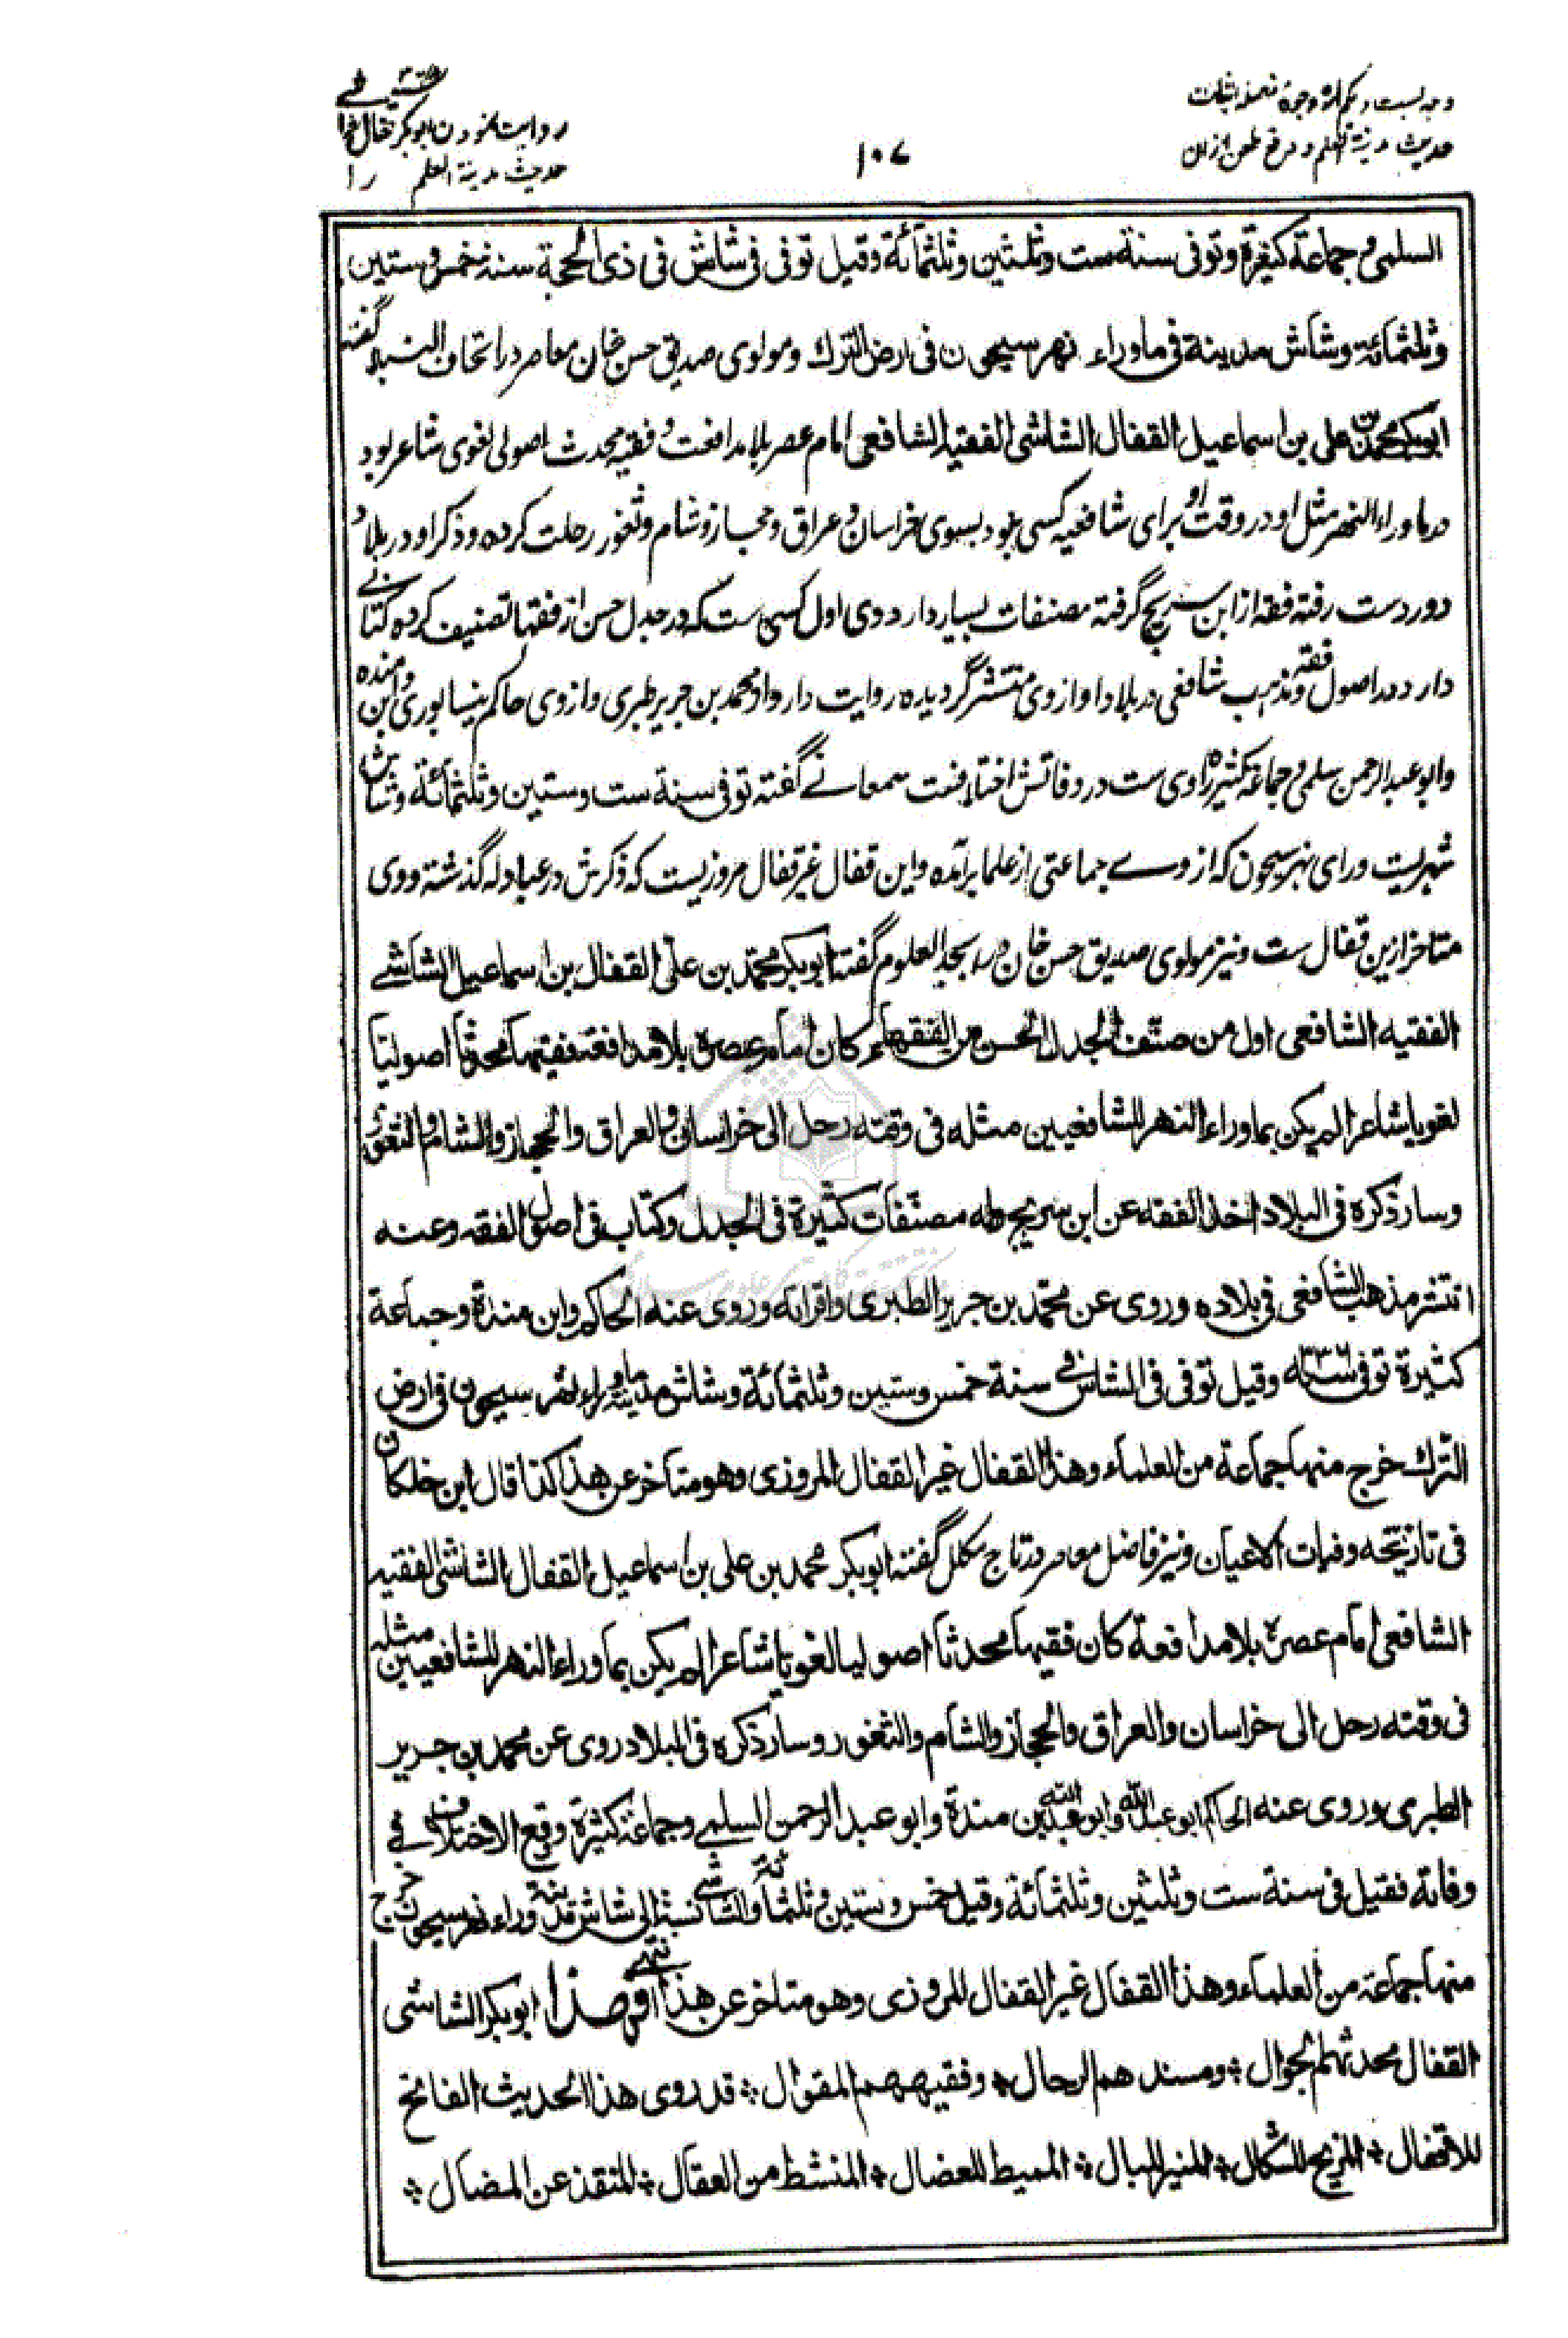 وجه بست و یکم از وجوه تسعه اثبات
حدیث مدینة العلم و دفع طعن از ان
۱۰۷
روایت نمودن ابوبکر قفال شاشی
حدیث مدینة العلم را
السلمی و جماعة کثیرة و توفی سنة ست و ثلثین و ثلثمائة و قیل توفی فی شاش فی ذی الحجة سنة خمس و ستین
و ثلثمائة و شاش مدینة فی ماوراء نهر سیحون فی ارض الترک و مولوی صدیق حسن خان معاصر در اتحاف النبلا گفته
ابوبکر محمد بن علی بن اسماعیل القفال الشاشی الفقیه الشافعی امام عصر بلا مدافعت و فقیه محدث اصولی لغوی شاعر بود
در ماوراء النهر مثل او در وقت او برای شافعیه کسی نبود بسوی خراسان و عراق و حجاز و شام و ثغور رحلت کرده و ذکر او در بلاد
دور دست رفته فقه از ابن سریج گرفته مصنفات بسیار دارد وی اول کسی ست که در جدل حسن از فقها تصنیف کرده کتابی
دارد در اصول فقه و مذهب شافعی در بلاد او از وی منتشر گردیده روایت دارد او محمد بن جریر طبری و از وی حاکم نیسابوری و ابن منده
و ابو عبد الرحمن سلمی و جماعة کثیره راوی ست در وفاتش اختلافست سمعانی گفته توفی سنة ست و ستین و ثلثمائة و شاش
شهریست ورای نهر سیحون که از وی جماعتی از علما برآمده و این قفال غیر قفال مروزیست که ذکرش در عبادله گذشته و وی
متاخر ازین قفال ست و نیز مولوی صدیق حسن خان در ابجد العلوم گفته ابوبکر محمد بن علی القفال بن اسماعیل الشاشی
الفقیه الشافعی اول من صنف الجدل الحسن من الفقهاء کان امام عصره بلا مدافعة فقیها محدثا اصولیا
لغویا شاعرا لم یکن بماوراء النهر للشافعیین مثله فی وقته رحل الی خراسان و العراق و الحجاز و الشام و الثغور
و سار ذکره فی البلاد اخذ الفقه عن ابن سریج وله مصنفات کثیرة فی الجدل و کتاب فی اصول الفقه و عنه
انتشر مذهب الشافعی فی بلاده و روی عن محمد بن جریر الطبری و اقرانه و روی عنه الحاکم و ابن مندة و جماعة
کثیرة توفی سنة ۳۳۶ و قیل توفی فی الشاش فی سنة خمس و ستین و ثلثمائة و شاش مدینة ماوراء نهر سیحون فی ارض
الترک خرج منها جماعة من العلماء و هذا القفال غیر القفال المروزی و هو متاخر عن هذا کذا قال ابن خلکان
فی تاریخه وفیات الاعیان و نیز فاضل معاصر در تاج مکلل گفته ابوبکر محمد بن علی بن اسماعیل القفال الشاشی الفقیه
الشافعی امام عصره بلا مدافعة کان فقیها محدثا اصولیا لغویا شاعرا لم یکن بماوراء النهر للشافعیین مثله
فی وقته رحل الی خراسان و العراق و الحجاز و الشام و الثغور و سار ذکره فی البلاد روی عن محمد بن جریر
الطبری و روی عنه الحاکم ابو عبد الله و ابو عبد الله بن مندة و ابو عبد الرحمن السلمی و جماعة کثیرة وقع الاختلاف فی
وفاته فقیل فی سنة ست و ثلثین و ثلثمائة و قیل خمس و ستین و ثلثمائة و الشاشی نسبة الی شاش مدینة وراء نهر سیحون خرج
منها جماعة من العلماء و هذا القفال غیر القفال المروزی و هو متاخر عن هذا انتهی فهذا ابوبکر الشاشی
القفال محدثهم الجوال * و مسندهم الرحال * و فقیههم المقوال * قد روی هذا الحدیث الفاتح
للاقفال * المزیح للاشکال * المنیر للبال * الممیط للعضال * المنشط من العقال * المنقذ عن المضال *